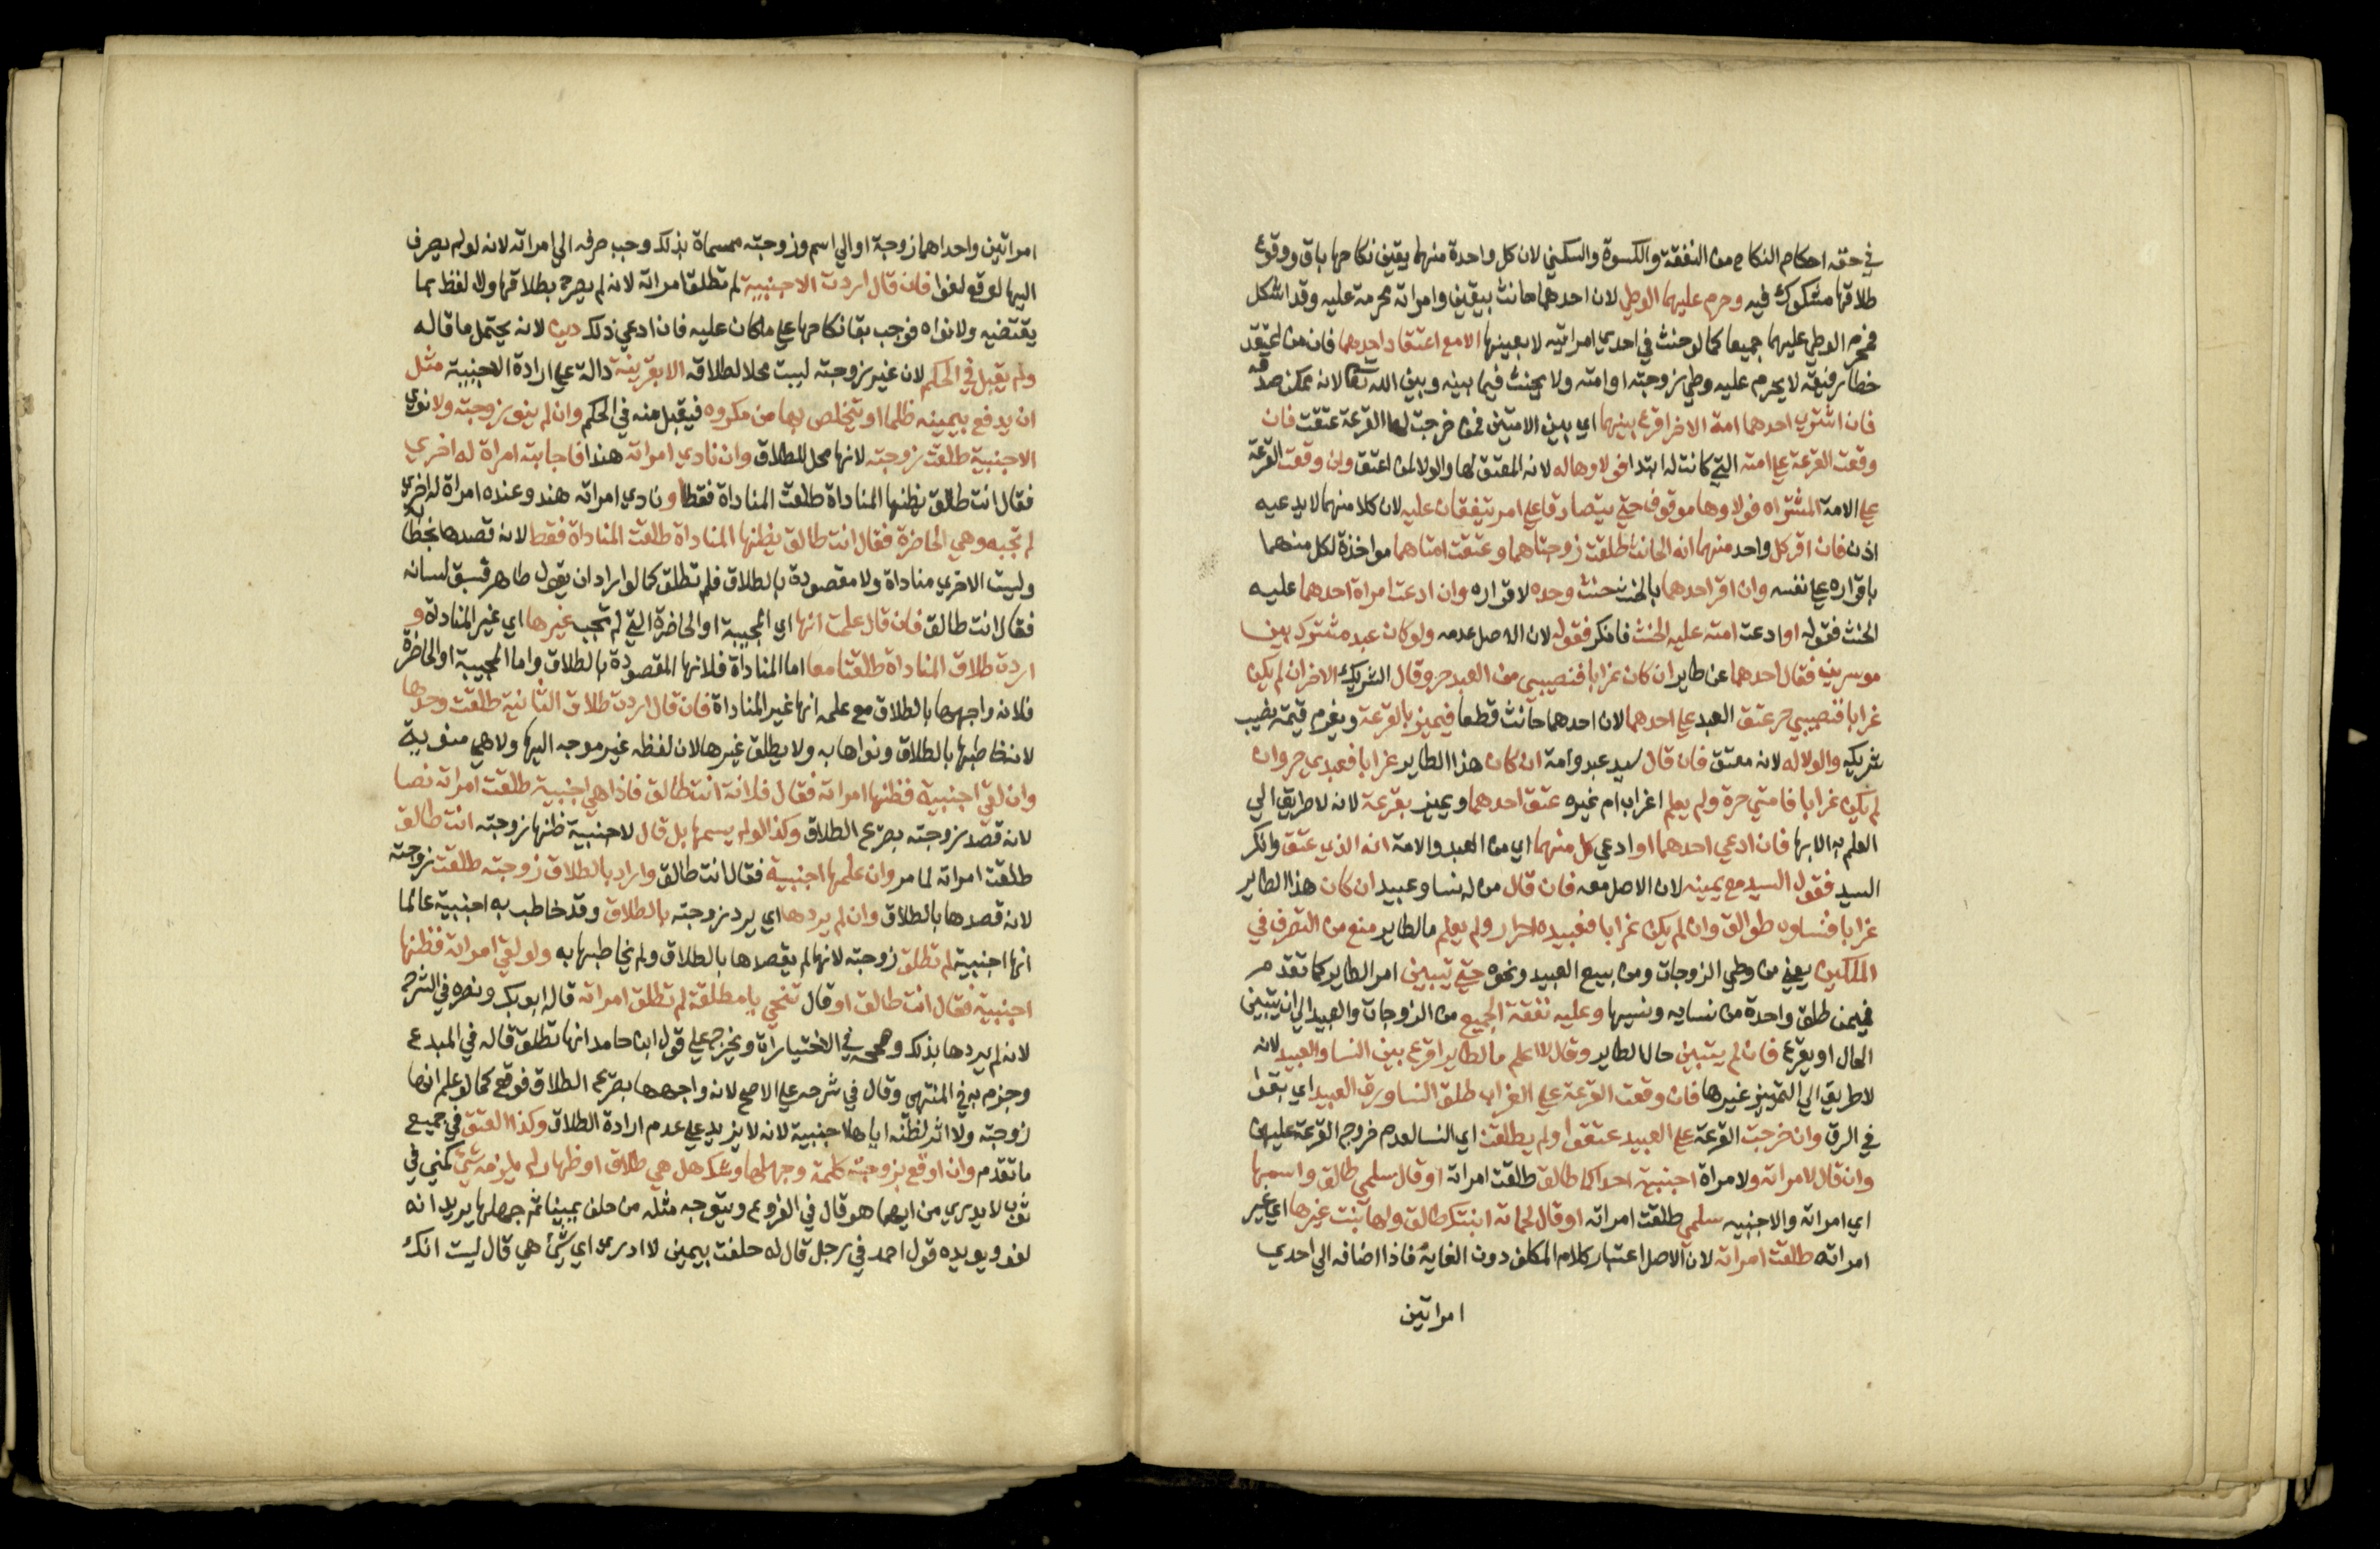 في حقه احكام النكاح من النفقة والكسوة والسكني لان كل واحدة منهما يقين نكاحها باق ووقوع
طلاقها مشكوك فيه وحرم عليهما الوطي لان احدهما حانث بيقين وامراته محرمة عليه وقد اشكل
فحرم الوطي عليهما جميعا كما لو حنث في احدي امراتيه لا بعينها الا مع اعتقاد احدهما فان من اعتقد
خطا رفيقه لا يحرم عليه وطي زوجته او امته ولا يحنث فيما بينه وبين الله تعا لانه ممكن صدقه
فان اشتري احدهما امة الاخر اقرع بينهما اي بين الامتين فمن خرجت لها القرعة عتقت فان
وقعت القرعة علي امته التي كانت له ابتدا فولاوها له لانه المعتق لها والولا لمن اعتق وان وقعت القرعة
علي الامة المشتراه فولاوها موقوف حتي يتصادقا علي امر يتفقان عليه لان كلا منهما لا يدعيه
اذن فان اقر كل واحد منهما انه الحانث طلقت زوجتاهما وعتقت امتاهما مواخذة لكل منهما
باقراره علي نفسه وان اقر احدهما بالحنث حنث وحده لاقراره وان ادعت امراة احدهما عليه
الحنث فقوله او ادعت امته عليه الحنث فانكر فقوله لان الاصل عدمه ولو كان عبد مشترك بين
موسرين فقال احدهما عن طاير ان كان غرابا فنصيبي من العبد حر وقال الشريك الاخر ان لم يكن
غرابا فنصيبي حر عتق العبد علي احدهما لان احدهما حانث قطعا فيميز بالقرعة ويغرم قيمة نصيب
شريكه والولا له لانه معتق فان قال سيد عبد وامة ان كان هذا الطاير غرابا فعبدي حر وان
لم يكن غرابا فامتي حرة ولم يعلم اغراب ام غيره عتق احدهما ويميز بقرعة لانه لا طريق الي
العلم به الا بها فان ادعي احدهما او ادعي كل منهما اي من العبد والامة انه الذي عتق وانكر
السيد فقول السيد مع يمينه لان الاصل معه فان قال من له نسا وعبيد ان كان هذا الطاير
غرابا فنساوه طوالق وان لم يكن غرابا فعبيده احرار ولم يعلم ما الطاير منع من التصرف في
الملكين يعني من وطي الزوجات ومن بيع العبيد ونحوه حتي يتبين امر الطاير كما تقدم
فيمن طلق واحدة من نسايه ونسيها وعليه نفقة الجميع من الزوجات والعبيد الي ان يتبين
الحال او يقرع فان لم يتبين حال الطاير وقال لا اعلم ما الطاير اقرع بين النسا والعبيد لانه
لا طريق الي التمييز غيرها فان وقعت القرعة علي الغراب طلق النسا ورق العبيد اي بقوا
في الرق وان خرجت القرعة علي العبيد عتقوا ولم يطلقن اي النسا لعدم خروج القرعة عليهن
وان قال لامراته ولامراة اجنبية احداكما طالق طلقت امراته او قال سلمي طالق واسمها
اي امراته والاجنبيه سلمي طلقت امراته او قال لحماته ابنتك طالق ولها بنت غيرها اي غير
امراته طلقت امراته لان الاصل اعتبار كلام المكلف دون الغايه فاذا اضافه الي احدي
امراتين
امراتين واحداهما زوجة او الي اسم وزوجته مسماة بذلك وجب صرفه الي امراته لانه لو لم يصرف
اليها لوقع لغوا فان قال اردت الاجنبية لم تطلق امراته لانه لم يصرح بطلاقها ولا لفظ بما
يقتضيه ولا نواه فوجب بقا نكاحها علي ما كان عليه فان ادعي ذلك دين لانه يحتمل ما قاله
ولم يقبل في الحكم لان غير زوجته ليست محلا لطلاقه الا بقرينة دالة علي ارادة الاجنبية مثل
ان يدفع بيمينه ظلما او يتخلص بها من مكروه فيقبل منه في الحكم وان لم ينو زوجته ولا نوي
الاجنبية طلقت زوجته لانها محل للطلاق وان نادي امراته هندا فاجابته امراة له اخري
فقال انت طالق يظنها المناداة طلقت المناداة فقط او نادي امراته هند وعنده امراة له اخري
لم تجبه وهي الحاضرة فقال انت طالق يظنها المناداة طلقت المناداة فقط لانه قصدها بخطابه
وليست الاخري مناداة ولا مقصودة بالطلاق فلم تطلق كما لو اراد ان يقول طاهر فسبق لسانه
فقال انت طالق فان قال علمت انها اي المجيبة او الحاضرة التي لم تجب غيرها اي غير المناداة و
اردت طلاق المناداة طلقتا معا اما المناداة فلانها المقصودة بالطلاق واما المجيبة او الحاضرة
فلانه واجهها بالطلاق مع علمه انها غير المناداة فان قال اردت طلاق الثانية طلقت وحدها
لانه خاطبها بالطلاق ونواها به ولا يطلق غيرها لان لفظه غير موجه اليها ولا هي منوية
وان لقي اجنبية فظنها امراته فقال فلانة انت طالق فاذا هي اجنبية طلقت امراته نصا
لانه قصد زوجته بصريح الطلاق وكذا لو لم يسمها بل قال لاجنبية ظنها زوجته انت طالق
طلقت امراته لما مر وان علمها اجنبية فقال انت طالق واراد بالطلاق زوجته طلقت زوجته
لانه قصدها بالطلاق وان لم يردها اي يرد زوجته بالطلاق وقد خاطب به اجنبية عالما
انها اجنبية لم تطلق زوجته لانها لم يقصدها بالطلاق ولم يخاطبها به ولو لقي امراته فظنها
اجنبية فقال انت طالق او قال تنحي يا مطلقة لم تطلق امراته قاله ابو بكر ونصره في الشرح
لانه لم يردها بذلك وصححه في الاختيارات ويخرج علي قول ابن حامد انها تطلق قاله في المبدع
وجزم به في المنتهي وقال في شرحه علي الاصح لانه واجهها بصريح الطلاق فوقع كما لو علم انها
زوجته ولا اثر لظنه اياها اجنبية لانه لا يزيد علي عدم ارادة الطلاق وكذا العتق في جميع
ما تقدم وان اوقع بزوجته كلمة وجهلها وشك هل هي طلاق او ظهار لم يلزمه شي كمني في
ثوب لا يدري من ايهما هو قال في الفروع ويتوجه مثله من حلف يمينا ثم جهلها يريد انه
لغو ويويده قول احمد في رجل قال له حلفت بيمين لا ادري اي شي هي قال ليت انك